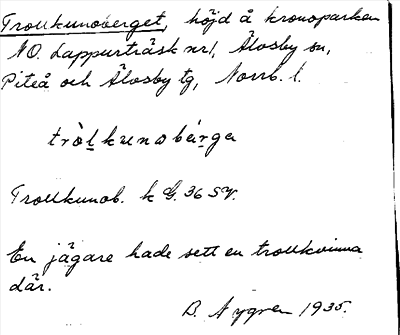 Trollkunoberget, höjd å kronoparken
NO. Lappurträsk nr1, Älvsby sn,
Piteå och Älvsby tg, Norrb. l.
tròl̠kunobár̠ga
Trollkunob. k G. 36 SV.
En jägare hade sett en trollkvinna
där.
B. Nygren 1935.